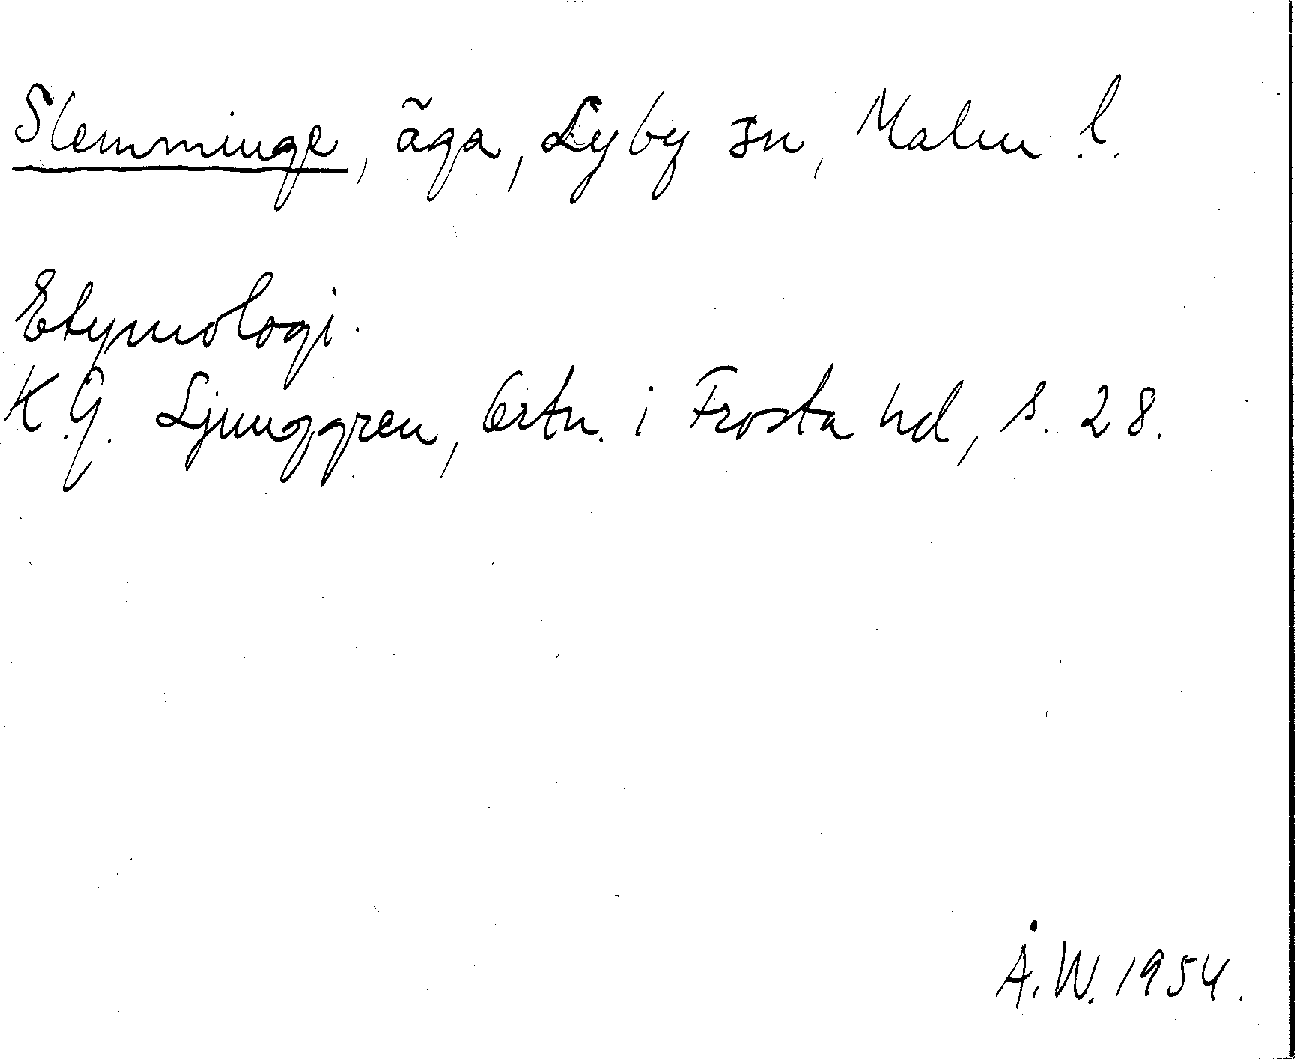 Slemminge, äga, Lyby sn, Malm l.
Etymologi.
K.G. Ljunggren, Ortn. i Frosta hd, s. 28.
Å.W. 1954.